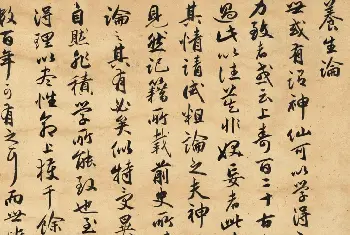 養生論
世或有謂神仙可以學得
力致者或云上壽百二十古
過此以往莫非妖妄者此
其情請試粗論之夫神
見然記籍所載前史所
論之其有必矣似特受異
自然非積學所能致也至
得理以盡性命上獲千餘
數百年可有之耳而世